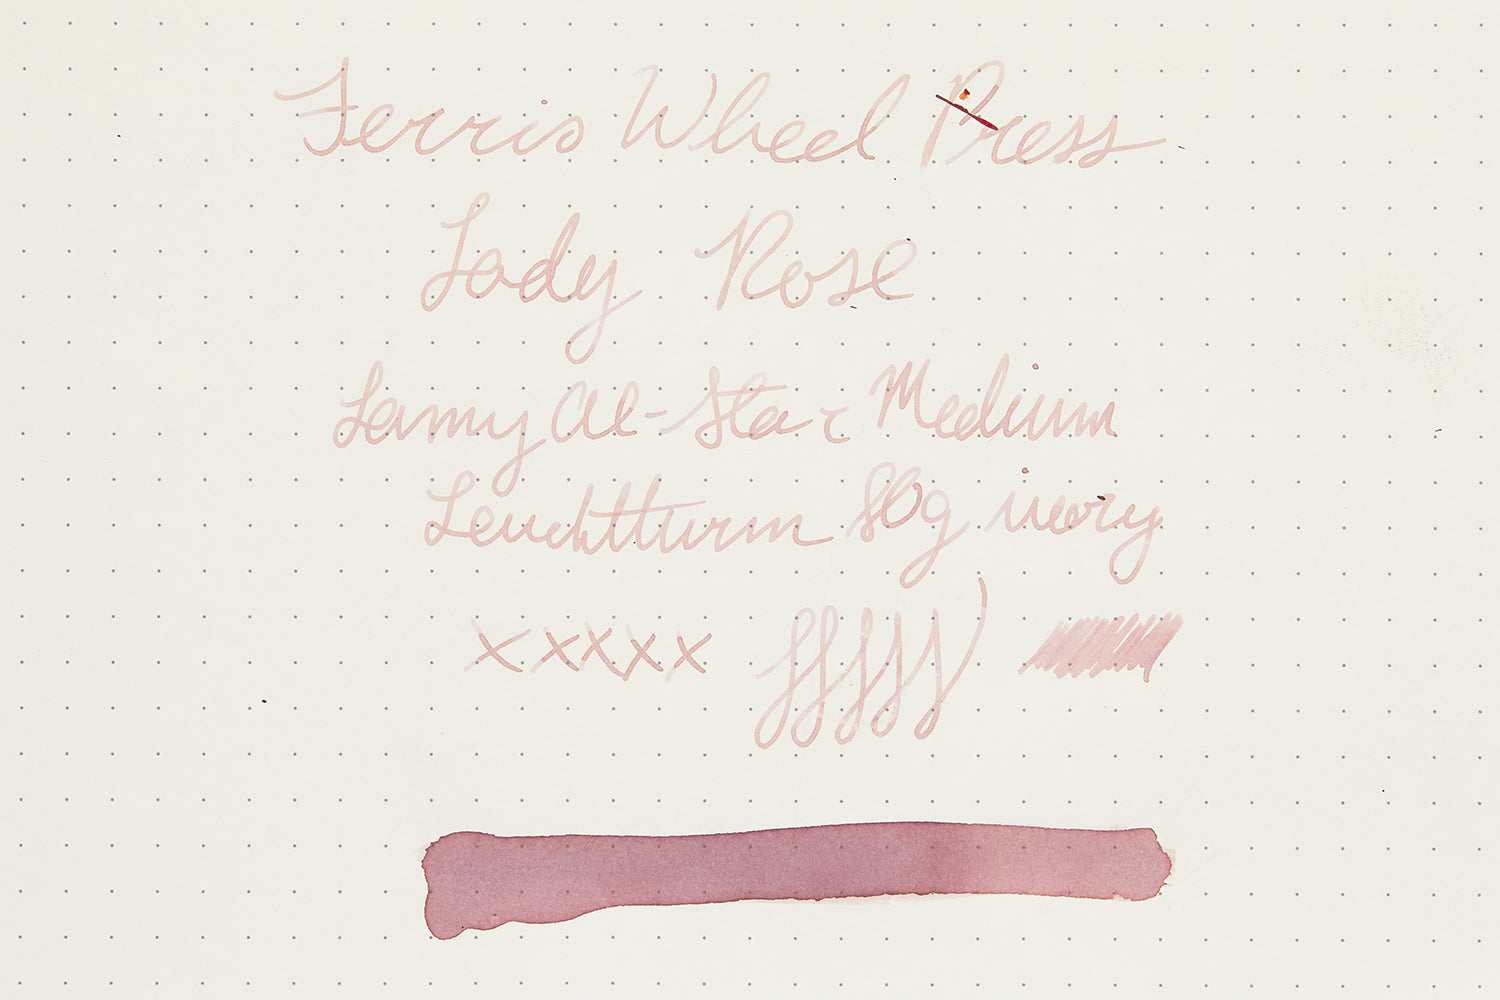 Ferris Wheel Press
Lady Rose
Lamy Al-Star Medium
Leuchtturm 80g ivory
x x x x x